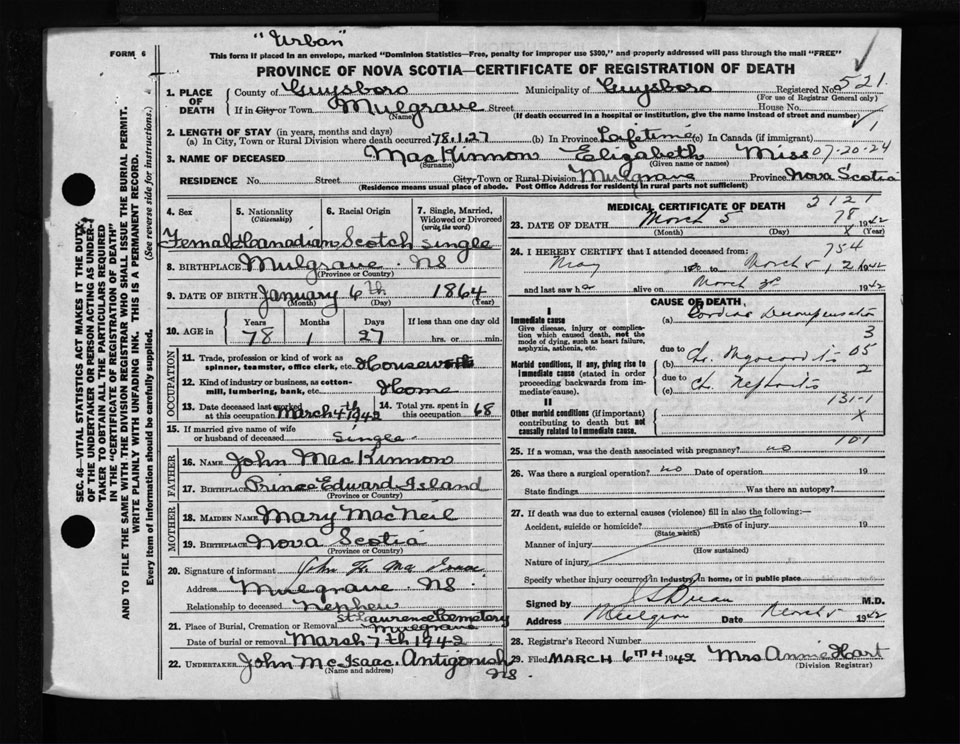 "Urban"
FORM 6
This form if placed in an envelope, marked "Dominion Statistics—Free, penalty for improper use $300," and properly addressed will pass through the mail "FREE"
PROVINCE OF NOVA SCOTIA—CERTIFICATE OF REGISTRATION OF DEATH
521
1. PLACE OF DEATH County of Guysboro Municipality of Guysboro Registered No.
(For use of Registrar General only)
If in City or Town Mulgrave Street House No.
(Name) (If death occurred in a hospital or institution, give the name instead of street and number)
1
2. LENGTH OF STAY (in years, months and days)
(a) In City, Town or Rural Division where death occurred 78.1.27 (b) In Province Lifetime (c) In Canada (if immigrant)
3. NAME OF DECEASED MacKinnon Elizabeth Miss 07-20-24
(Surname) (Given name or names)
RESIDENCE No. Street City, Town or Rural Division Mulgrave Province Nova Scotia
(Residence means usual place of abode. Post Office Address for residents in rural parts not sufficient)
4. Sex 5. Nationality (Citizenship) 6. Racial Origin 7. Single, Married, Widowed or Divorced (write the word)
Female Canadian Scotch single
8. BIRTHPLACE Mulgrave NS
(Province or Country)
9. DATE OF BIRTH January 6th 1864
(Month) (Day) (Year)
10. AGE in Years Months Days If less than one day old
78 1 27 hrs. or min.
OCCUPATION
11. Trade, profession or kind of work as spinner, teamster, office clerk, etc. Housework
12. Kind of industry or business, as cotton-mill, lumbering, bank, etc. Home
13. Date deceased last worked at this occupation March 4th 1942 14. Total yrs. spent in this occupation 68
15. If married give name of wife or husband of deceased Single
FATHER
16. NAME John MacKinnon
17. BIRTHPLACE Prince Edward Island
(Province or Country)
MOTHER
18. MAIDEN NAME Mary MacNeil
19. BIRTHPLACE Nova Scotia
(Province or Country)
20. Signature of informant John
Address Mulgrave NS
Relationship to deceased nephew
21. Place of Burial, Cremation or Removal St Laurence Cemetery Mulgrave
Date of burial or removal March 7th 1942
22. UNDERTAKER John McIsaac. Antigonish NS.
(Name and address)
MEDICAL CERTIFICATE OF DEATH 2121
78
23. DATE OF DEATH March 5 1942
(Month) (Day) X (Year)
24. I HEREBY CERTIFY that I attended deceased from: 754
May 19 to March 5 1942
and last saw her alive on March 3rd 1942
CAUSE OF DEATH
I
Immediate cause (a) Cardiac Decompensation
Give disease, injury or complication which caused death, not the mode of dying, such as heart failure, asphyxia, asthenia, etc.
3
due to Ch. Myocarditis 05
Morbid conditions, if any, giving rise to immediate cause (stated in order proceeding backwards from immediate cause). (b) 2
due to Ch. Nephritis
(c)
131-1
II
Other morbid conditions (if important) contributing to death but not causally related to immediate cause. X
101
25. If a woman, was the death associated with pregnancy? no
26. Was there a surgical operation? no Date of operation 19
State findings Was there an autopsy?
27. If death was due to external causes (violence) fill in also the following:—
Accident, suicide or homicide? Date of injury 19
(State which)
Manner of injury
(How sustained)
Nature of injury
Specify whether injury occurred in industry, in home, or in public place
Signed by M.D.
Address Mulgrave Date March 5 1942
28. Registrar's Record Number
29. Filed MARCH 6TH 1942 Mrs Annie Hart
(Division Registrar)
SEC. 46—VITAL STATISTICS ACT MAKES IT THE DUTY
OF THE UNDERTAKER OR PERSON ACTING AS UNDER-
TAKER TO OBTAIN ALL THE PARTICULARS REQUIRED
IN THE "CERTIFICATE OF REGISTRATION OF DEATH"
AND TO FILE THE SAME WITH THE DIVISION REGISTRAR WHO SHALL ISSUE THE BURIAL PERMIT.
WRITE PLAINLY WITH UNFADING INK. THIS IS A PERMANENT RECORD.
Every item of information should be carefully supplied. (See reverse side for instructions.)